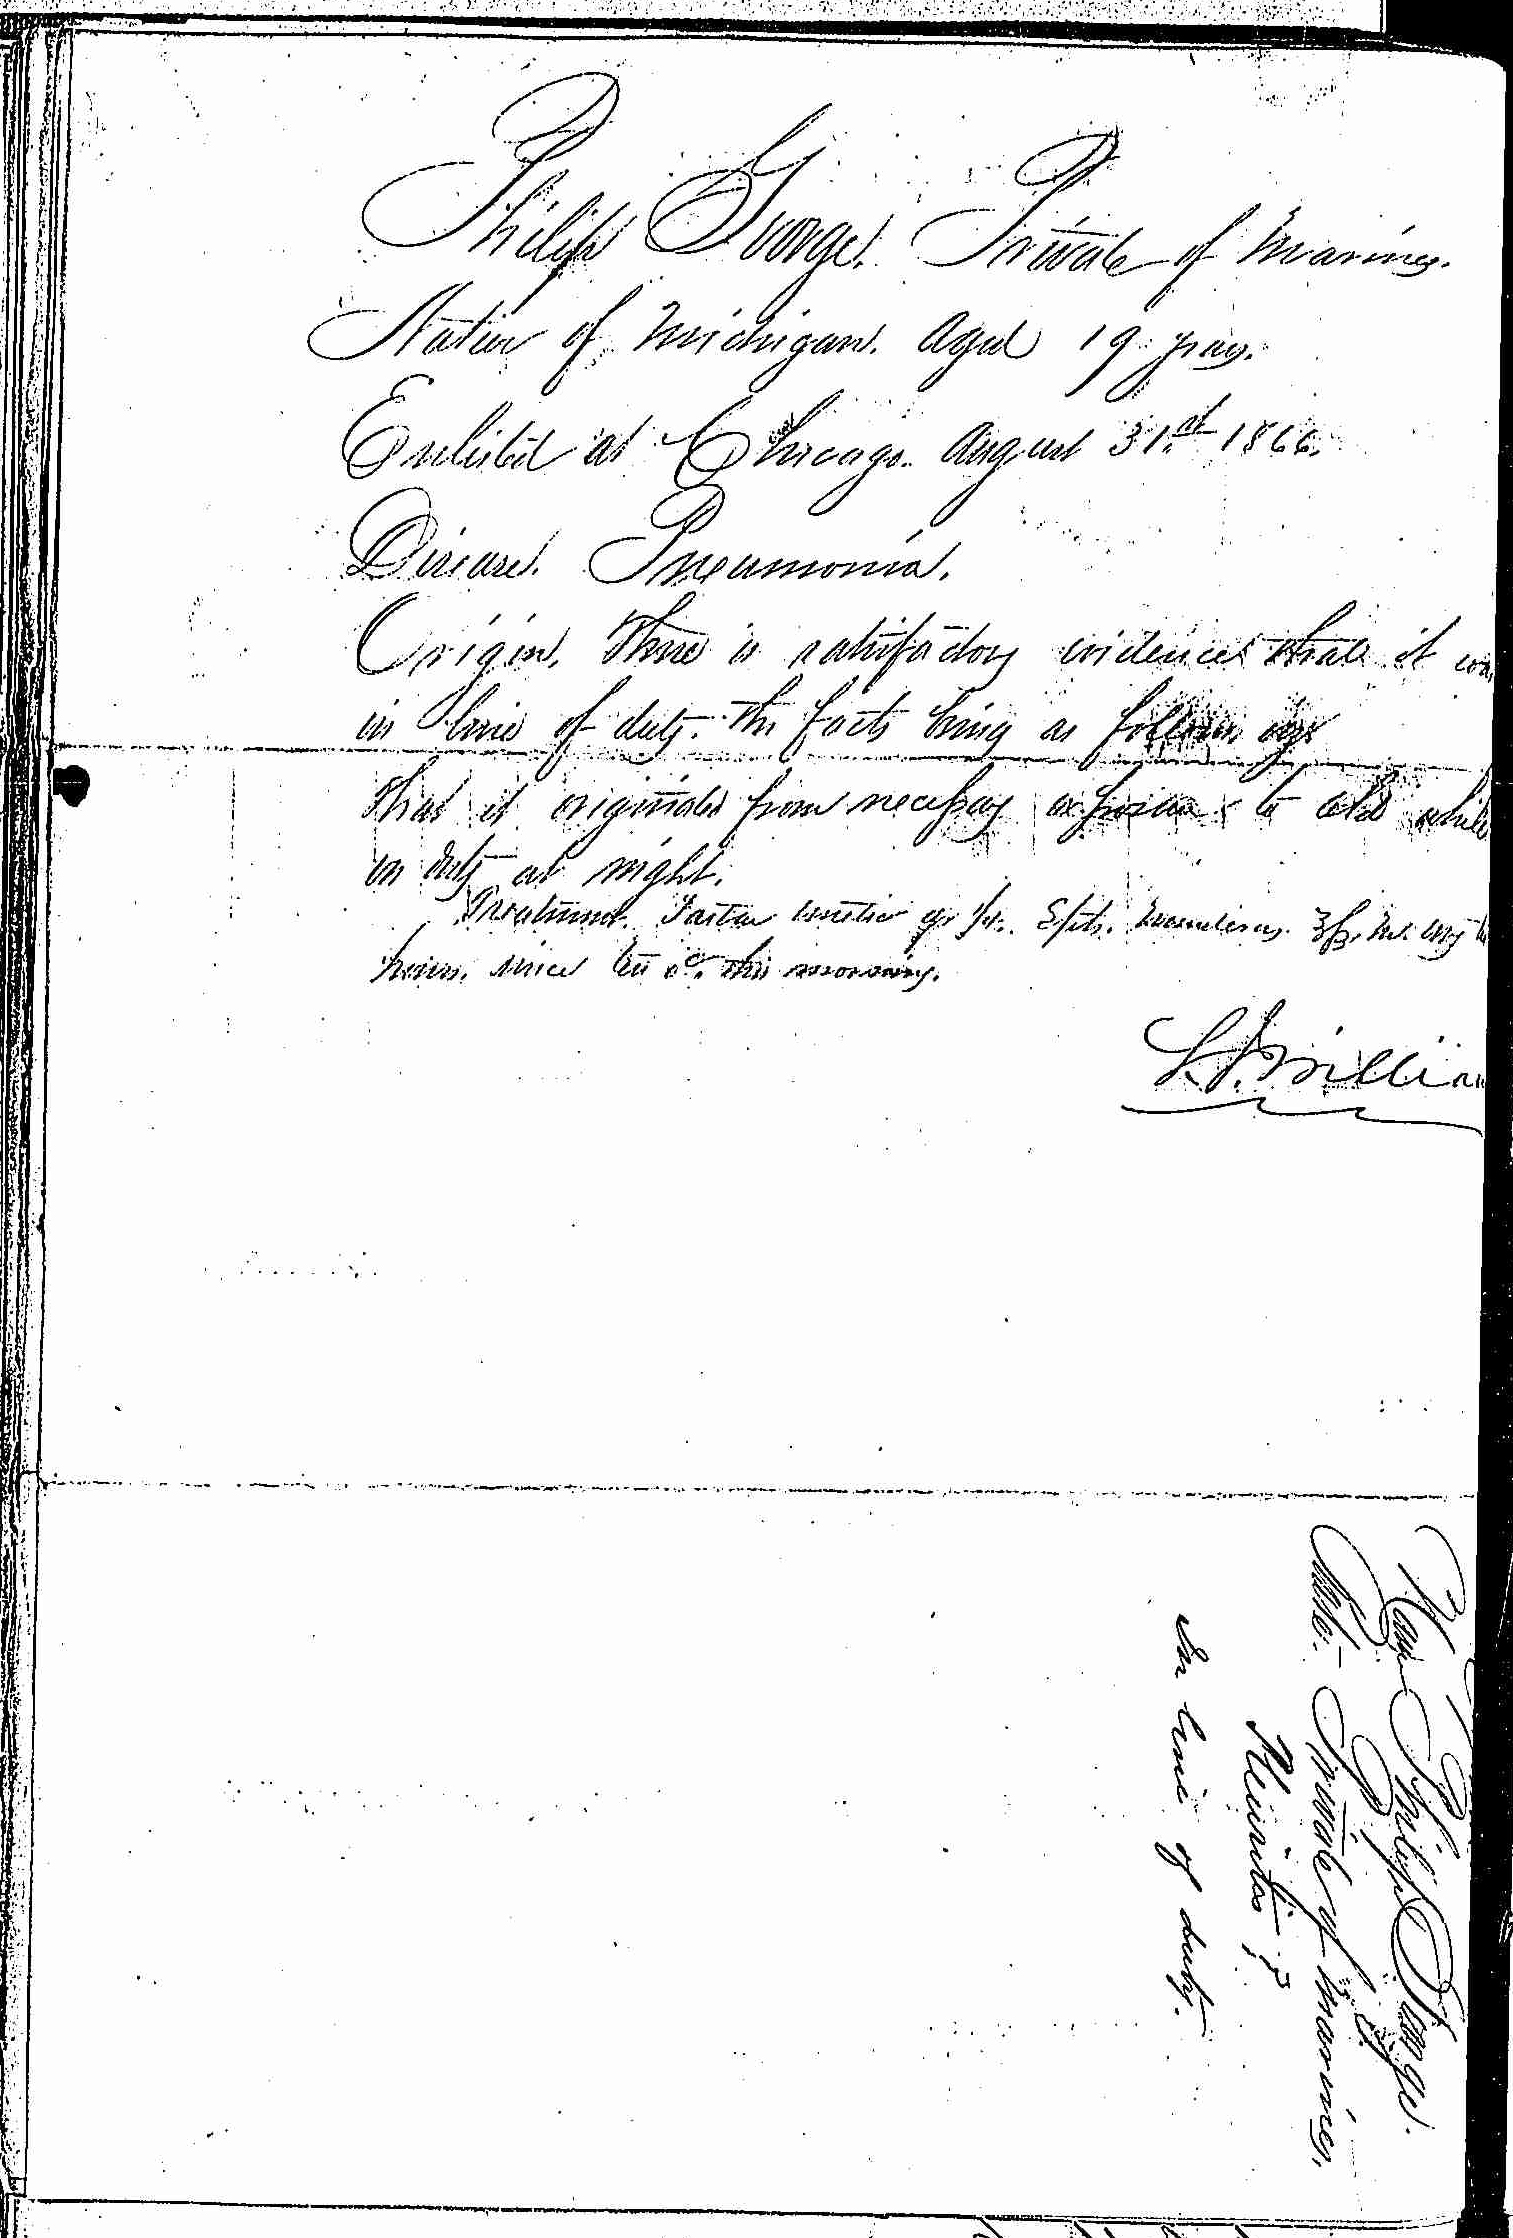 Philip George. Private of Marines.
Native of Michigan. Aged 19 years.
Enlisted at Chicago. August 31st 1866.
Disease. Pneumonia.
Origin. There is satisfactory evidence that it was
in line of duty. The facts being as follows viz
that it originated from necessary exposure to cold while
on duty at night.
Treatment. Tartar emetic gr 1/4. Spts. Mindererus. ℥ß. every
hours. since ten oc. this morning.
Philip George.
Private of Marines.
Pleuritis ?
In line of duty.